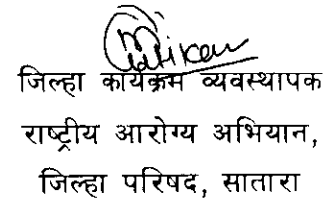 जिल्हा कार्यक्रम व्यवस्थापक
राष्ट्रीय आरोग्य अभियान,
जिल्हा परिषद, सातारा